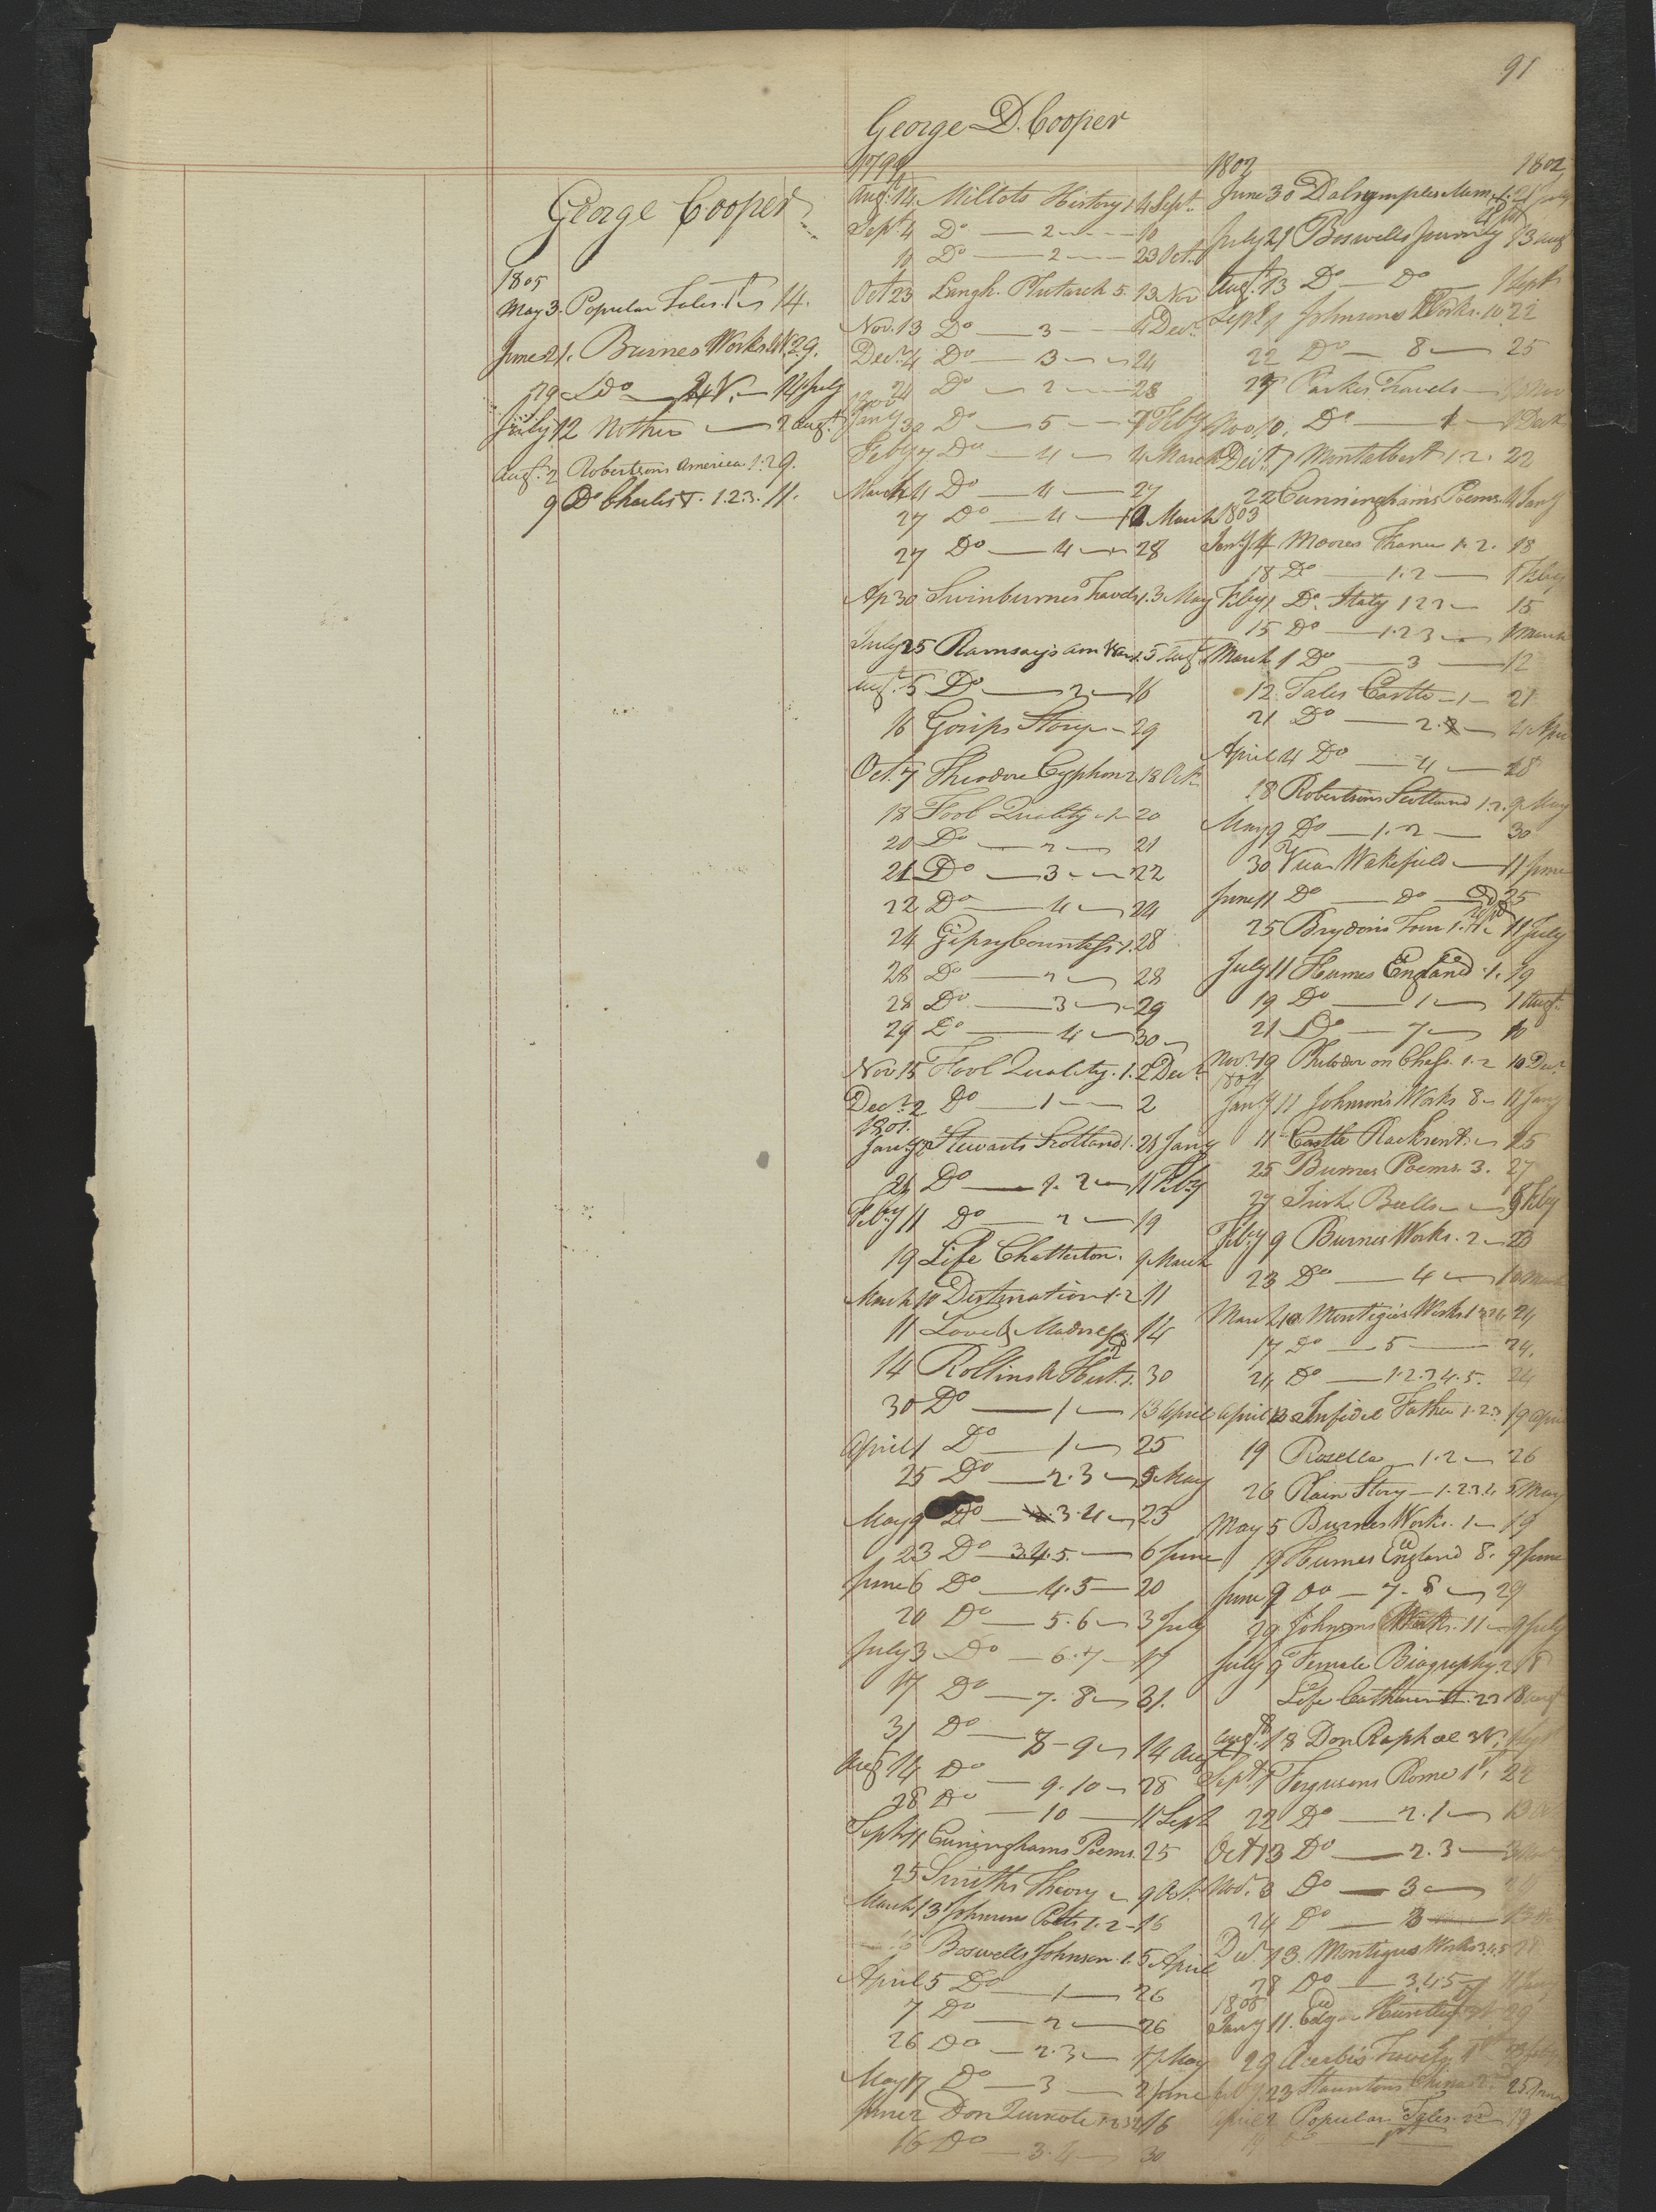 91
George D. Cooper
George Cooper
1805
May 3. Popular Tales 1st 14.
June 21. Burnes Works 29.
29 Do 14 July
July 12 Nothes 2 Augt
Augt 2 Robertsons America 1. 29.
9 Do Charles V. 1.2.3. 11.
1799
Augt 14. Millots History 1 4 Sept
Sept 4 Do 2 10
10 Do 2 23 Oct
Oct 23 Langh. Plutarch 5. 13 Nov
Nov. 13 Do 3 4 Decr
Decr 4 Do 3 24
24 Do 2 28
1800
Jany 30 Do 5 7 Feby
Feby 7 Do 4 4 March
March 4 Do 4 27
27 Do 4 March
27 Do 4 28
Ap 30 Swinburnes Travels 1. 3 May
July 25 Ramsay's Am War 1. 5 Augt
Augt 5 Do 2 16
16 Gosips Story 29
Oct. 7 Theodore Cyphon 2. 18 Oct
18 Fool Quality 1 20
20 Do 2 21
21 Do 3 22
22 Do 4 24
24 Gipsy Countess 1. 28
28 Do 2 28
28 Do 3 29
29 Do 4 30
Nov. 15 Fool Quality. 1. 2 Decr
Decr 2 Do 1 2
1801.
Jany Stewarts Scotland 1. 21 Jany
21 Do 1. 2 11 Feby
Feby 11 Do 2 19
19 Life Chatterton. 9 March
March 10 Destination 1.2 11
11 Love & Madness 14
14 Rollins A Hist. 1. 30
30 Do 1 13 April
April 1 Do 1 25
25 Do 2.3 9 May
May 9 Do 3.4 23
23 Do 3.4.5. 6 June
June 6 Do 4.5 20
20 Do 5.6 3 July
July 3 Do 6.7 17
17 Do 7.8 31.
31 Do 8-9 14 Augt
Augt 14 Do 9.10 28
28 Do 10 11 Sept
Sept 11 Cuninghams Poems. 25
25 Smiths Theory 9 Oct.
March 13 Johnsons Poets 1.2 16
Boswells Johnson. 1. 5 April
April 5 Do 1 26
7 Do 2 26
26 Do 2.3 17 May
May 17 Do 3 2 June
June 2 Don Quixote 1.2.3.4 16
16 Do 3.4 30
1802 1802
June 30 Dalrymples Mem. 1. 21 July
July 21 Boswells Journey 13 Aug
Augt 13 Do Do 1 Sept
Sept 1 Johnsons Works. 10 22
22 Do 8 25
29 Parkes Travels Nov
Nov 10. Do 1 1 Decr
Decr 1 Montalbert 1.2. 22
22 Cunningham's Poems. 4 Jany
1803
Jany 4 Moores France 1.2. 18
18 Do 1.2 1 Feby
Feby 1 Do. Italy 1 2 15
15 Do 1.2 3 1 March
March 1 Do 3 12
12 Tales Castle 1 21
21 Do 2. 4 Apr
April 4 Do 4 18
18 Robertsons Scotland 1.2. 9 May
May 9 Do 1.2 30
30 Vicar Wakefield 11 June
June 11 Do Do 25
25 Brydon's Tour 1. 11 July
July 11 Humes England 1. 19
19 Do 1 1 Augt
21 Do 7 10
Novr 19 Philodor on Chess. 1.2 10 Decr
1804
Jany 11 Johnson's Works 8 11 Jany
11 Castle Rackrent. 25
25 Burnes Poems. 3. 27
27 Irish Bulls 9 Feby
Feby 9 Burnes Works. 2 23
23 Do 4 10 March
March 10 Montigu's Works 1 24
17 Do 5 24.
24 Do 1.2.3.4.5. 24
April 13 Infidel Father 1.2.3 19 April
19 Rosella 1.2 26
26 Plain Story 1.2.3.4 5 May
May 5 Burnes Works. 1 19
19 Humes England 8. 9 June
June 9 Do 7.8 29
29 Johnsons Works. 11 9 July
July 9 Female Biography. 2 18
Life Catharine 18 Augt
Augt 18 Don Raphael Sept
Sept 1 Fergusons Rome 1st. 22
22 Do 2.1 13 Oct
Oct 13 Do 2.3 3 Nov
Nov. 3 Do 3 24
24 Do 3 13
Decr 13. Montigus Works 3.4.5 28
28 Do 3.4.5 11 Jany
1805
Jany 11. Edgar Huntley 29
29 Acerbi's Travels 1st 23 Feby
Feby 23 Stauntons China 2.
April 2 Popular Tales. 2d 19